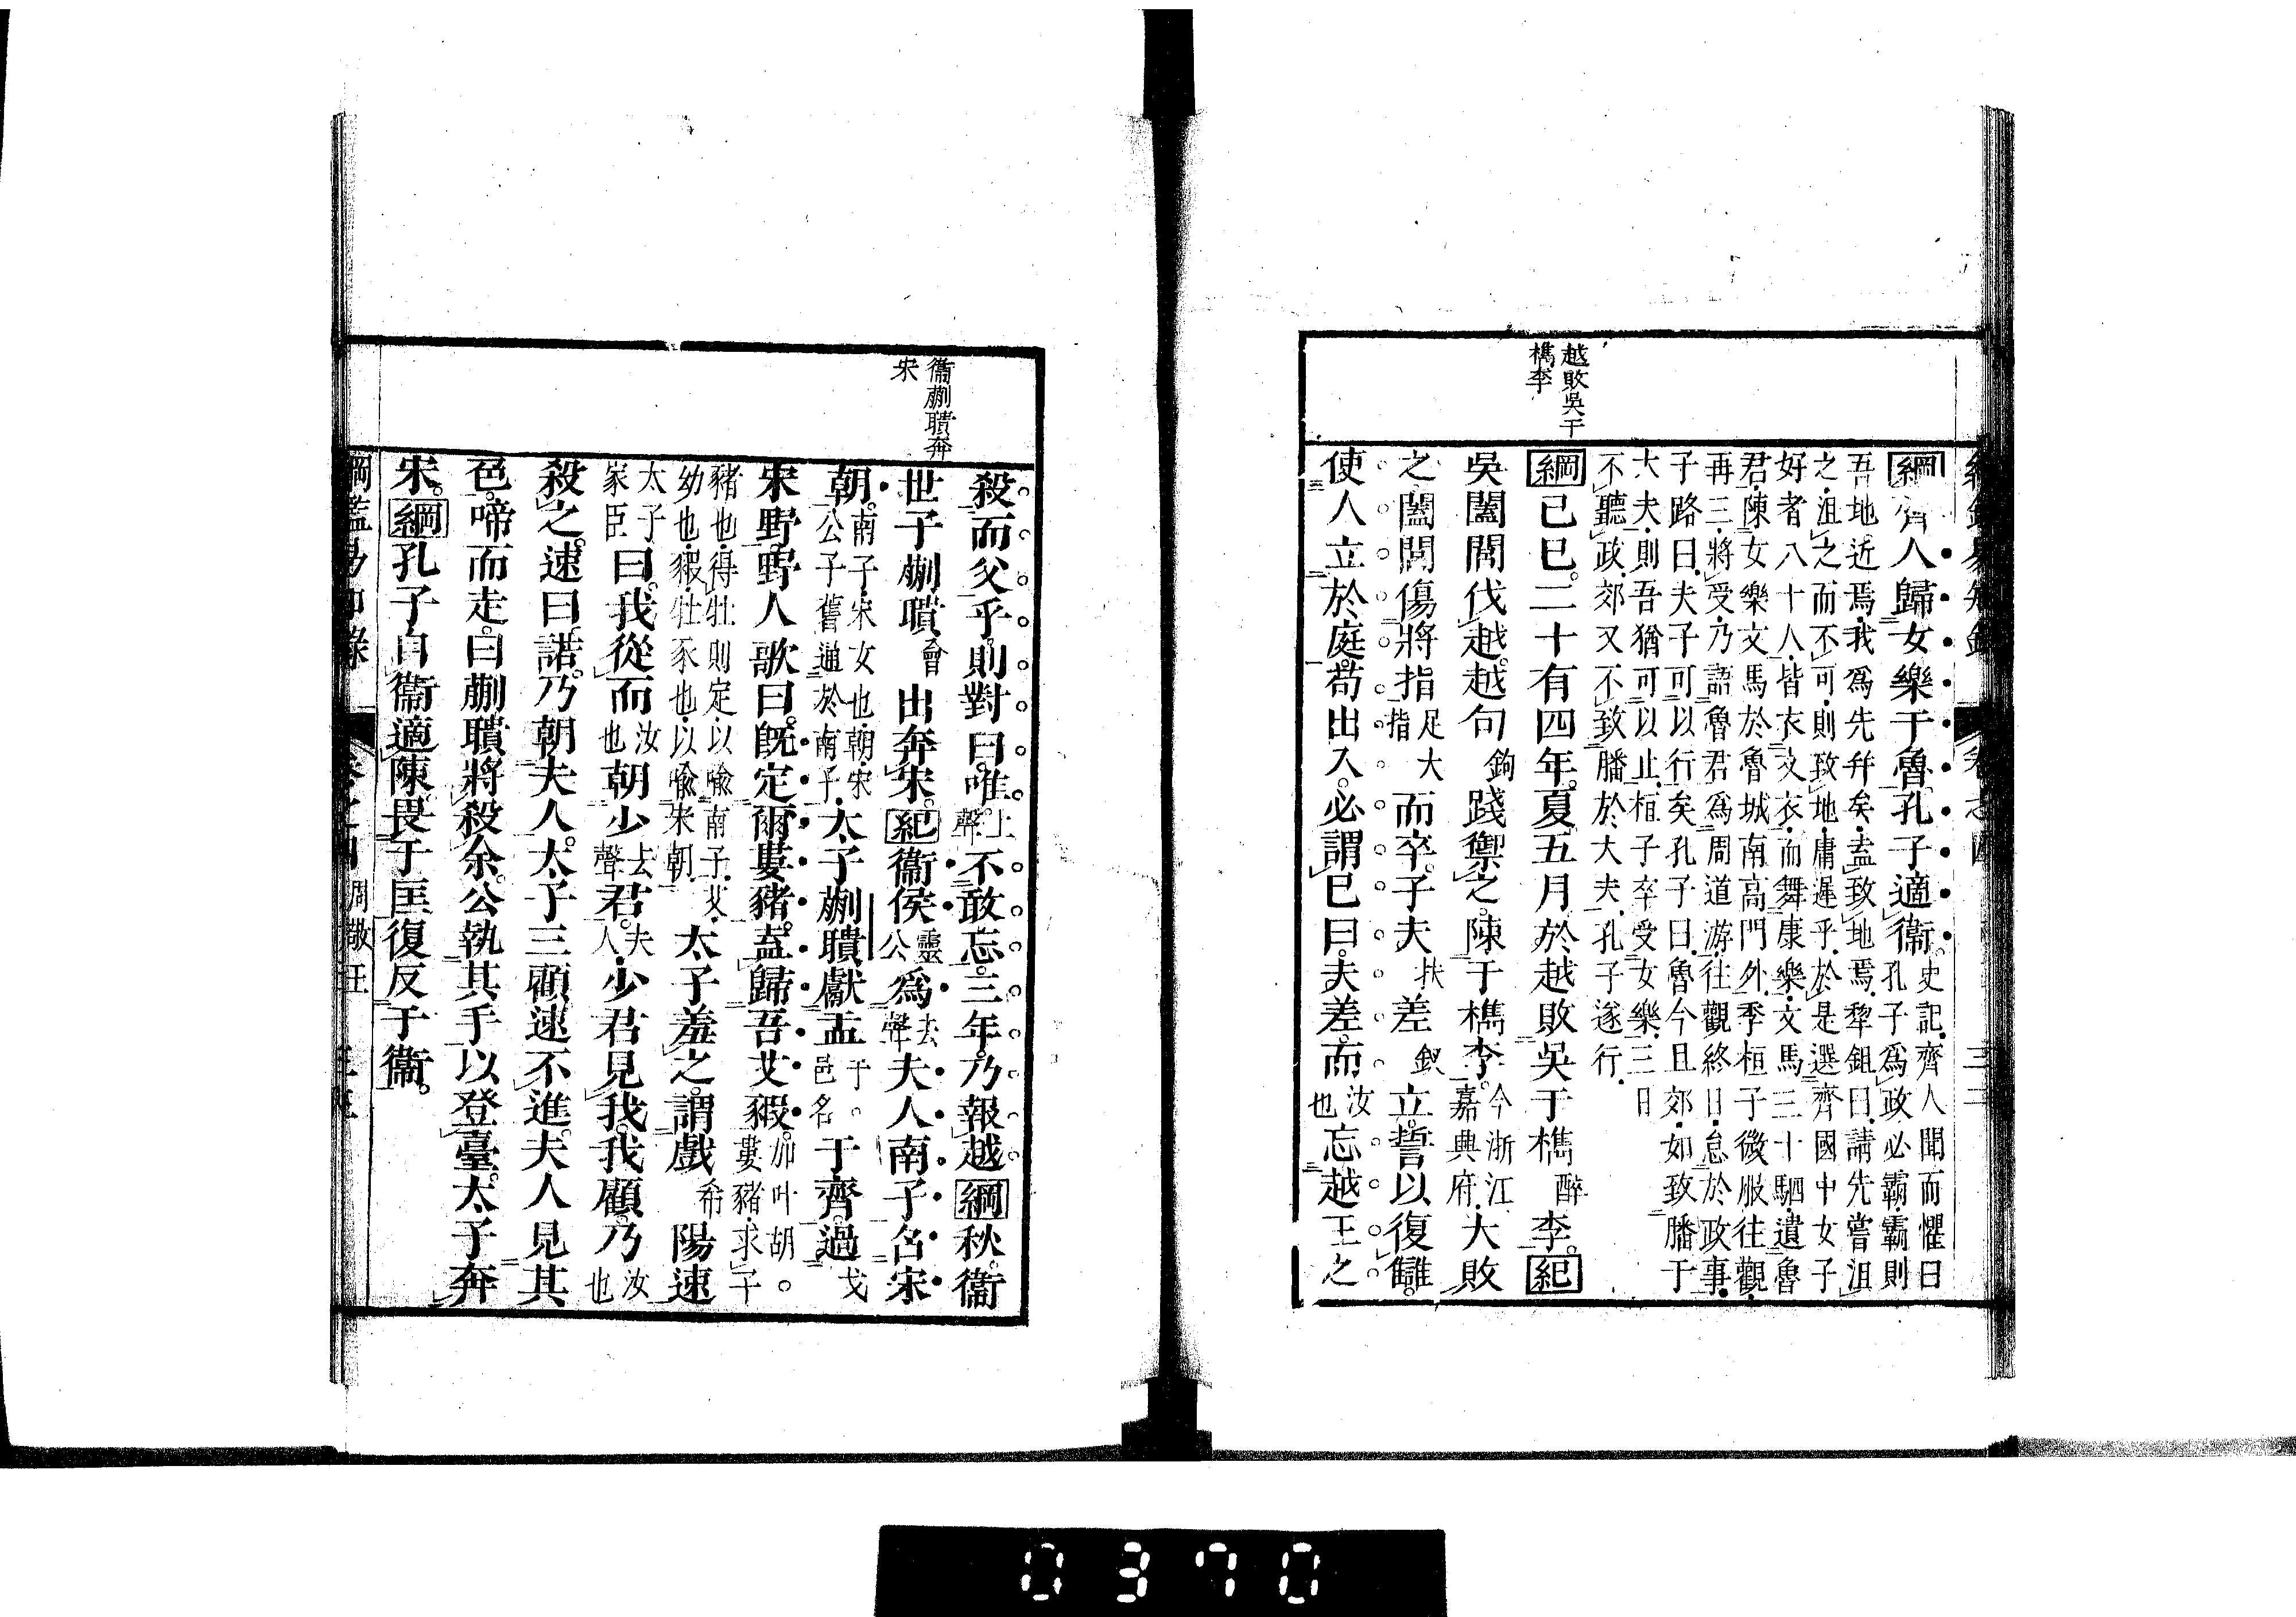 綱鑑易知錄 卷之四 三二
越敗吳于
檇李
綱齊人歸女樂于魯孔子適衞。史記齊人聞而懼曰
孔子爲政必霸霸則
吾地近焉我爲先幷矣盍致地焉犂鉏曰請先嘗沮
之沮之而不可則致地庸遲乎於是選齊國中女子
好者八十人皆衣文衣而舞康樂文馬三十駟遺魯
君陳女樂文馬於魯城南高門外季桓子微服往觀
再三將受乃語魯君爲周道游往觀終日怠於政事
子路曰夫子可以行矣孔子曰魯今且郊如致膰于
大夫則吾猶可以止桓子卒受女樂三日
不聽政郊又不致膰於大夫孔子遂行
綱己巳。二十有四年。夏五月於越敗吳于檇醉李。紀
吳闔閭伐越。越句鉤踐禦之。陳于檇李。今浙江嘉興府大敗
之闔閭傷將指足大指而卒。子夫扶差釵立。誓以復讎。
使人立於庭。苟出入。必謂己曰。夫差。而汝也忘越王之
衞蒯聵奔
宋
殺而父乎。則對曰。唯上聲。不敢忘。三年。乃報越綱秋。衞
世子蒯聵會出奔宋。紀衞侯靈公爲去聲夫人南子名宋
朝。南子宋女也朝宋公子舊通於南子太子蒯聵獻盂于。邑名于齊。過戈
宋野。野人歌曰。旣定爾婁豬。盍歸吾艾豭。加叶胡。婁豬求子
豬也得牡則定以喩南子艾
幼也豭牡豕也以喩宋朝太子羞之。謂戲希陽速
太子家臣曰。我從而汝也朝少去聲君。夫人少君見我。我顧。乃汝也
殺之。速曰。諾。乃朝夫人。太子三顧。速不進。夫人見其
色。啼而走。曰蒯聵將殺余。公執其手以登臺。太子奔
宋。綱孔子自衞適陳。畏于匡。復反于衞。
綱鑑易知錄 卷之四 周敬王 三三
0370